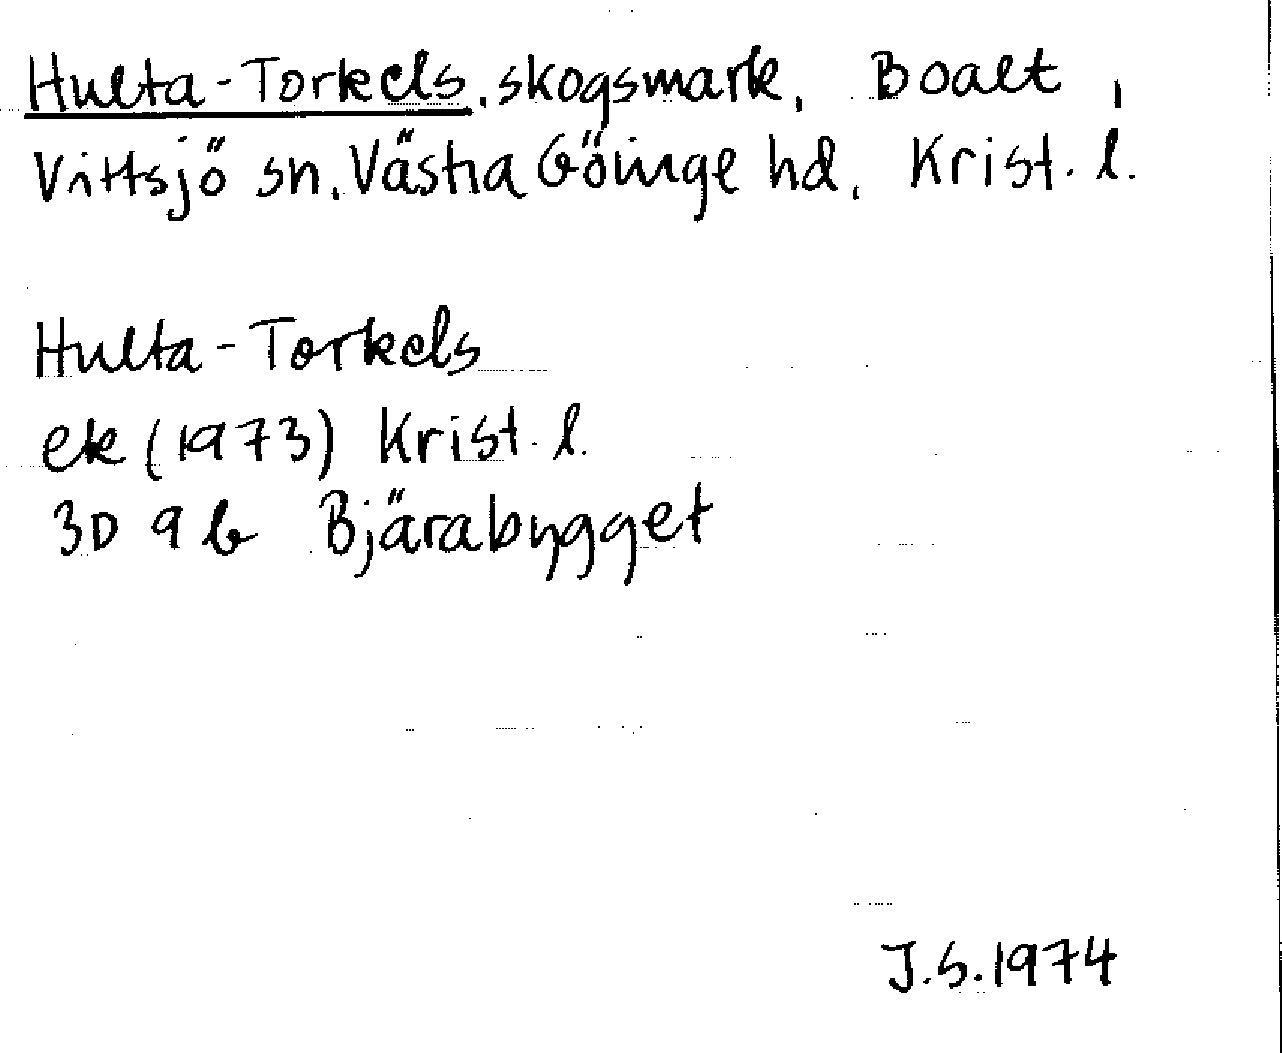 Hulta-Torkels, skogsmark, Boalt,
Vittsjö sn, Västra Göinge hd, Krist. l.
Hulta-Torkels
ek (1973) Krist. l.
3D 9b Bjärabygget
J.S. 1974